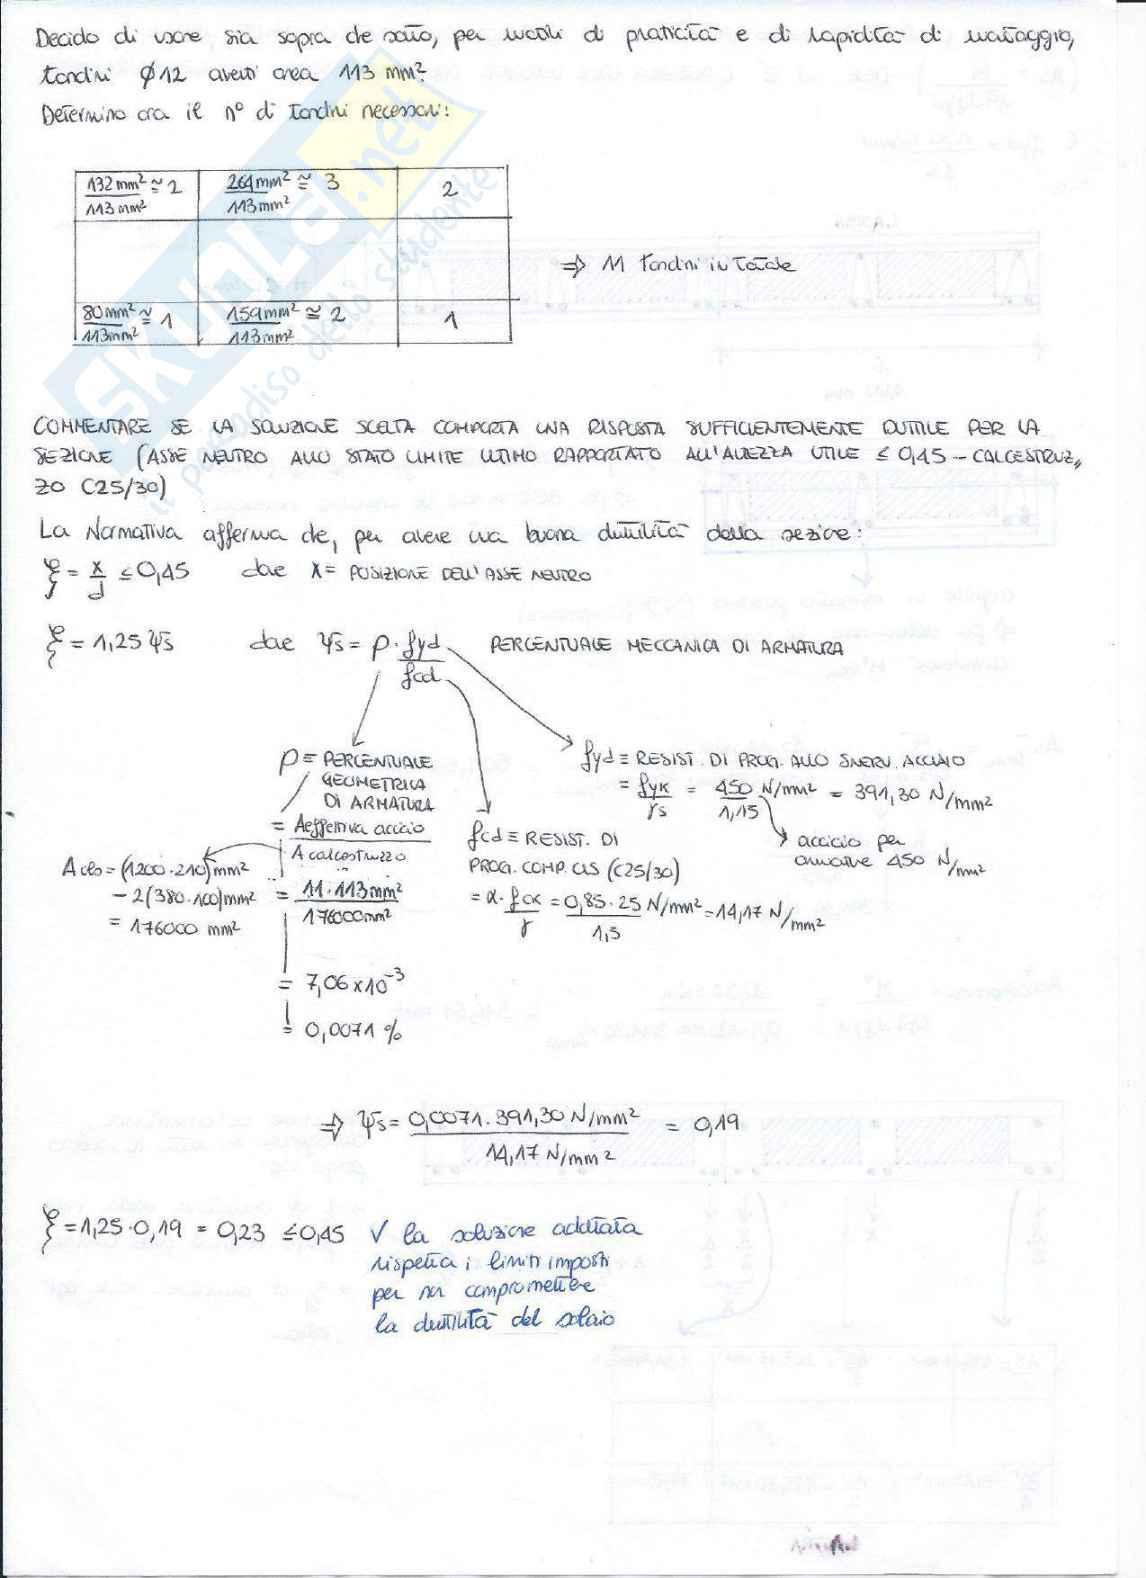 Decido di usare sia sopra che sotto, per motivi di praticità e di rapidità di montaggio,
tondini φ12 aventi area 113 mm².
Determino ora il n° di tondini necessari:
132 mm² ≅ 2
113 mm²
264 mm² ≅ 3
113 mm²
2
80 mm² ≅ 1
113 mm²
159 mm² ≅ 2
113 mm²
1
⇒ 11 tondini in totale
SKUOLA.net
il paradiso dello studente
COMMENTARE SE LA SOLUZIONE SCELTA COMPORTA UNA RISPOSTA SUFFICIENTEMENTE DUTTILE PER LA
SEZIONE (ASSE NEUTRO ALLO STATO LIMITE ULTIMO RAPPORTATO ALL'ALTEZZA UTILE ≤ 0,45 - CALCESTRUZ„
ZO C25/30)
La Normativa afferma che, per avere una buona duttilità della sezione:
ξ = x/d ≤ 0,45 dove x = POSIZIONE DELL'ASSE NEUTRO
ξ = 1,25 ψs dove ψs = ρ · fyd/fcd PERCENTUALE MECCANICA DI ARMATURA
ρ ≡ PERCENTUALE
GEOMETRICA
DI ARMATURA
= Aeffettiva acciaio
A calcestruzzo
= 11 · 113 mm²
176000 mm²
= 7,06 x 10⁻³
= 0,0071 %
A cls = (1200 · 210) mm²
- 2(380 · 100) mm²
= 176000 mm²
fcd ≡ RESIST. DI
PROG. COMP. CLS (C25/30)
= α · fck/γ = 0,85 · 25 N/mm² / 1,5 = 14,17 N/mm²
fyd ≡ RESIST. DI PROG. ALLO SNERV. ACCIAIO
= fyk/γs = 450 N/mm² / 1,15 = 391,30 N/mm²
acciaio per
armature 450 N/mm²
⇒ ψs = 0,0071 · 391,30 N/mm² / 14,17 N/mm² = 0,19
ξ = 1,25 · 0,19 = 0,23 ≤ 0,45 √ la soluzione adottata
rispetta i limiti imposti
per non compromettere
la duttilità del solaio